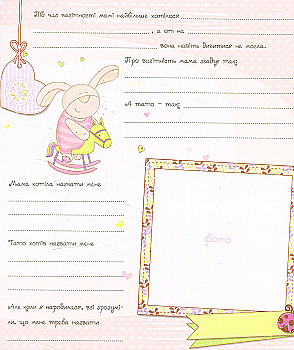 Під час вагітності мамі найбільше хотілося
, а от на
, вона навіть дивитися не могла.
Про вагітність мама згадує так:
А тато - так:
Мама хотіла назвати мене
Тато хотів назвати мене
Але коли я народилася, всі зрозумі-
ли, що мене треба назвати
Фото